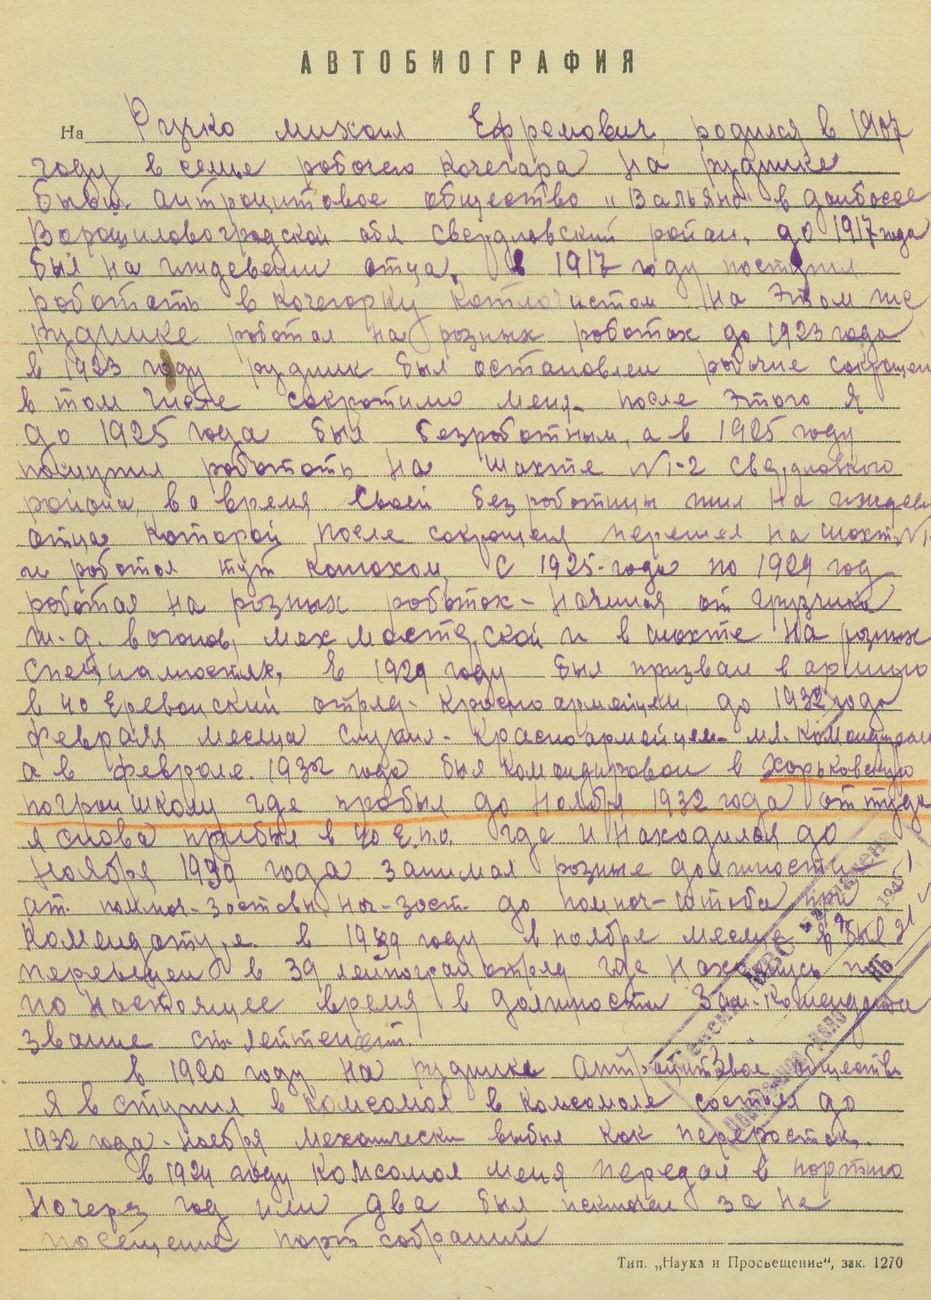 АВТОБИОГРАФИЯ
На Ручко михаил Ефремович, родился в 1907
году в семье робочего кочегара на руднике
бывш. антроцитовое общество „Вальяно" в донбассе
Ворошиловоградской обл свердловский ройан, до 1917 года
был на иждевении отца, в 1917 году поступил
роботать в кочегорку котлочистом на этом же
руднике роботал на розных роботах до 1923 года
в 1923 году рудник был остановлен робочие сокращен
в том числе сокротили меня. после этого Я
до 1925 года был безроботным, а в 1925 году
поступил робототь на шахте №1-2 свердловского
ройана, во время своей безроботицы жил на иждев
отца которой после сокрощеня перешел на шохт №1
и роботал тут конюхом, С 1925-года по 1929 год
роботал на розных роботох - начиная от грузчика
ж.д. вогонов, мех мостерской и в шохте на розных
специальностях, в 1929 году был призван в армию
в 40 Еревонский отряд - красноармейцем, до 1932 года
февраля месяца служил - красноармейцем - мл. командиром
а в февроле 1932 года был командирован в Харьковскую
погроншколу где пробыл до Ноября 1932 года от туда
я снова прибыл в 40 Е.п.о. где и находился до
Ноября 1939 года занимал розные должности
от помнач-зоставы, нач-заст. до помнач-штоба при
комендатуре. в 1939 году в ноябре месяце я был
переведен в 39 погран отряд где нахожусь
по настоящее время в должности Зам-Коменданта
звание ст. лейтенант.
в 1920 году на руднике Антроцитовое общество
я вступил в комсомол в комсомоле состоял до
1932 года - ноября механически выбыл как переросток.
в 1924 году комсомол меня передал в портию
но через год или два был исключен за не
посещение порт собраний
Тип. „Наука и Просвещение", зак. 1270